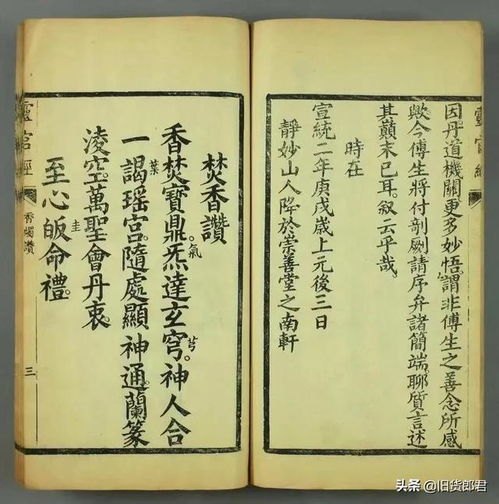 靈官經
因丹道機關更多妙悟。謂非傅生之善念所感
歟今傅生將付剞劂請序弁諸簡端。聊質言述
其巔末已耳。叙云乎哉
時在
宣統二年庚戌歲上元後三日
靜妙山人降於崇善堂之南軒
焚香讚
香焚寶鼎。炁氣達玄穹。神人合
一謁葉瑤宮。隨處顯神通。蘭篆
凌空。萬聖會丹衷。
至心皈命禮。
靈官經
三
头条 @旧货郎君